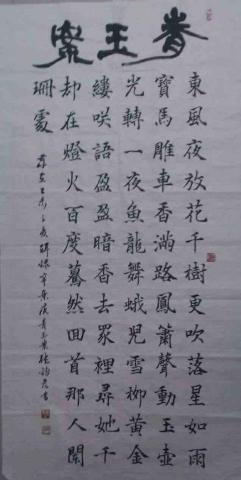 青玉案
東風夜放花千樹更吹落星如雨
寶馬雕車香滿路鳳簫聲動玉壺
光轉一夜魚龍舞蛾兒雪柳黃金
縷咲語盈盈暗香去眾裡尋她千
却在燈火百度驀然回首那人闌
珊處
辛棄疾青玉案